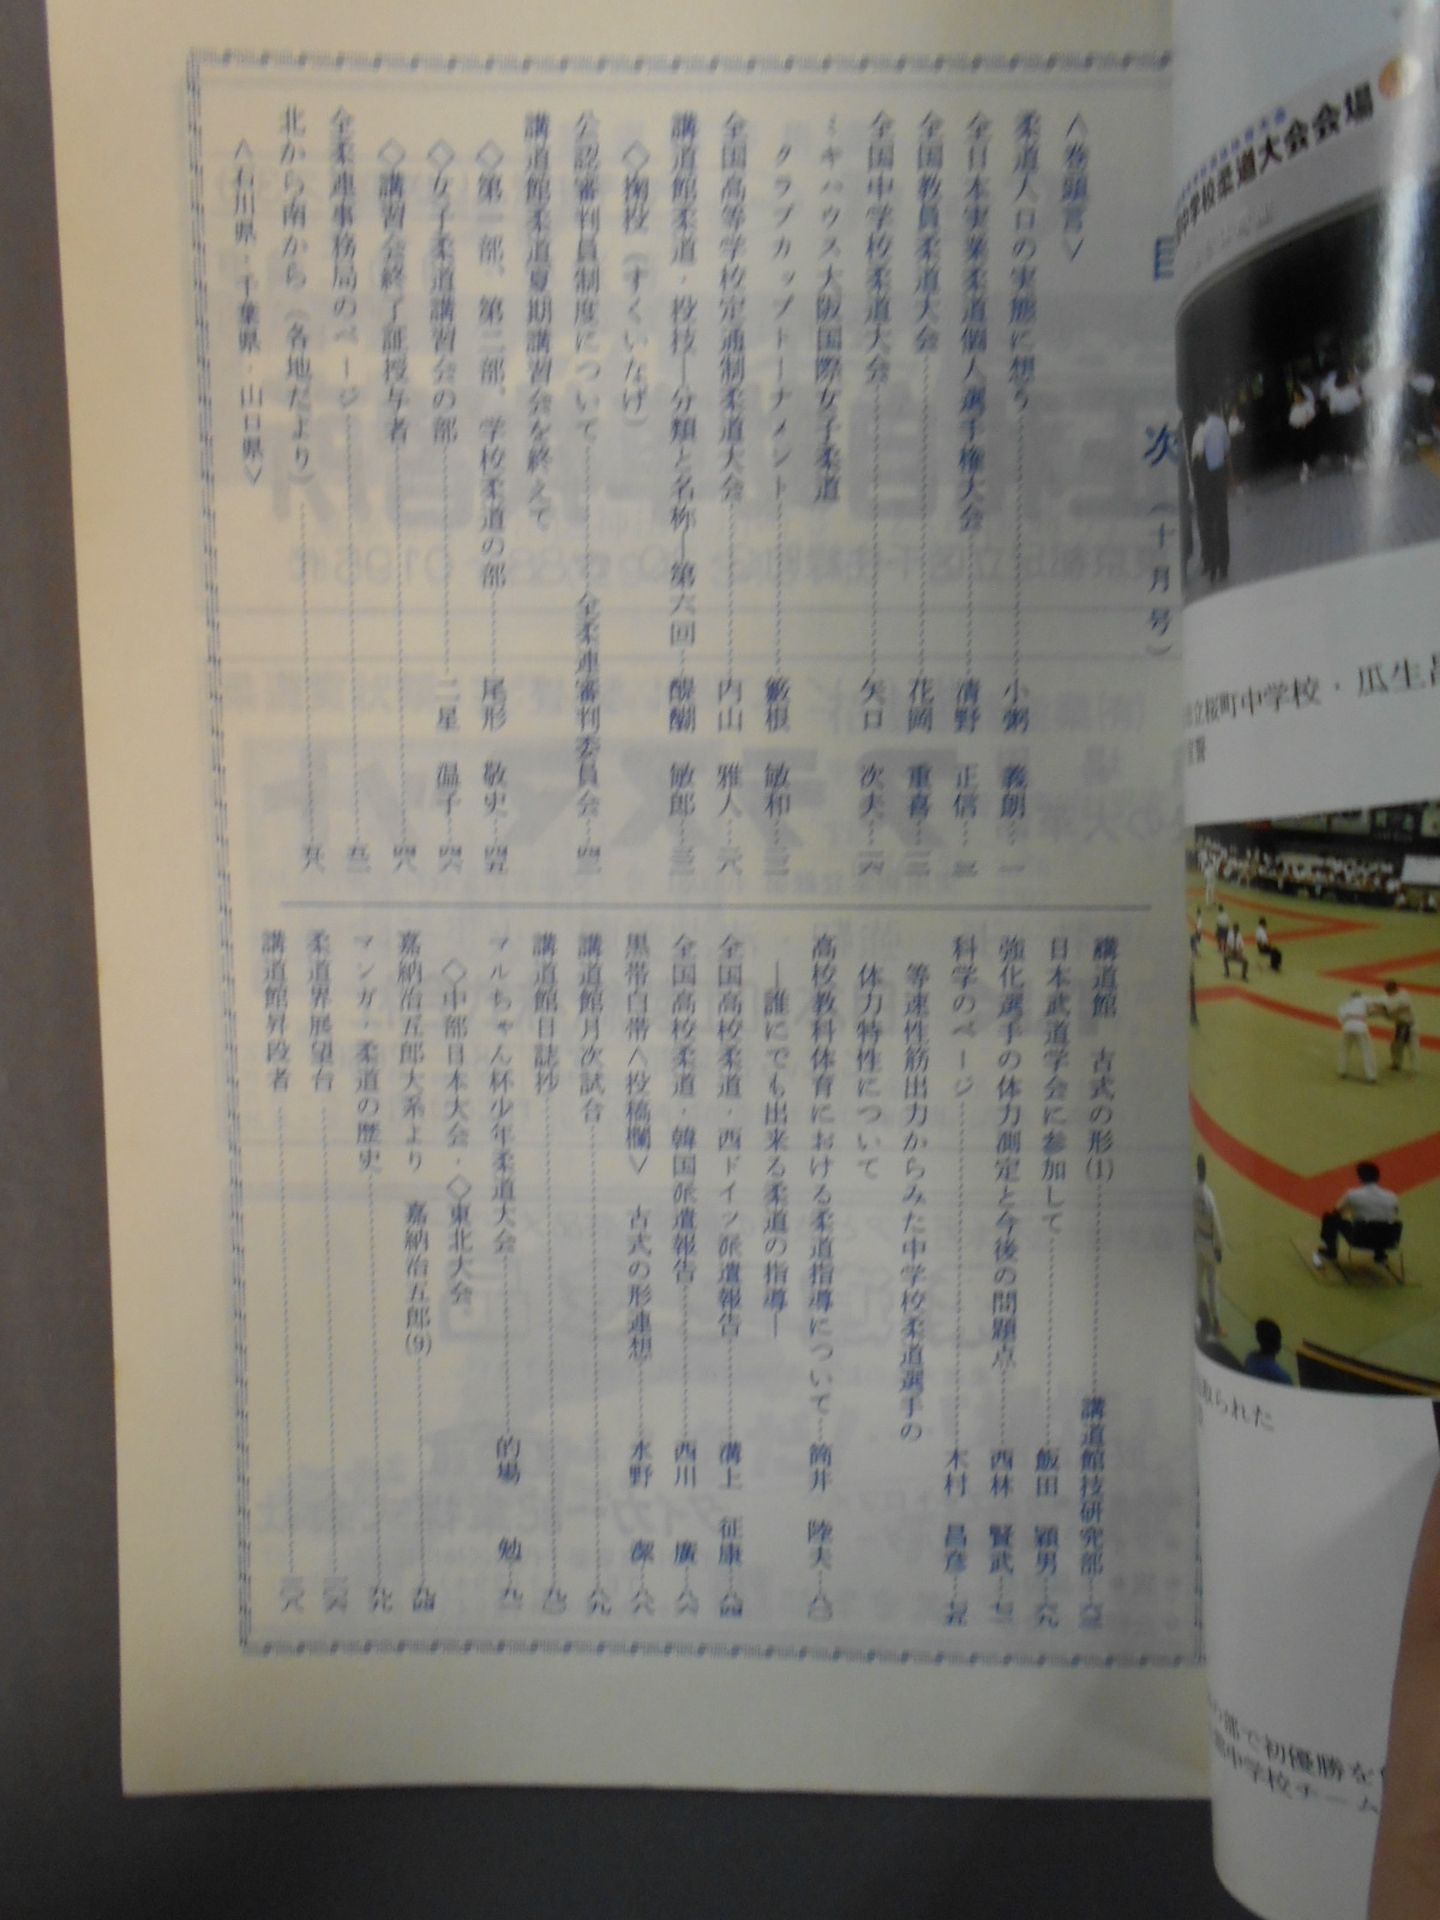 目次(十月号)
<巻頭言>
柔道人口の実態に想う 小粥 義朗 一
全日本実業柔道個人選手権大会 清野 正信
全国教員柔道大会 花岡 重喜
全国中学校柔道大会 矢口 次夫 一六
ミキハウス大阪国際女子柔道
クラブカップトーナメント 籔根 敏和
全国高等学校定通制柔道大会 内山 雅人 二八
講道館柔道・投技―分類と名称―第六回 醍醐 敏郎
◇掬投(すくいなげ)
公認審判員制度について 全柔連審判委員会
講道館柔道夏期講習会を終えて
◇第一部、第二部、学校柔道の部 尾形 敬史 四五
◇女子柔道講習会の部 二星 温子 四六
◇講習会終了証授与者 四八
全柔連事務局のページ
北から南から(各地だより) 五八
<石川県・千葉県・山口県>
講道館 古式の形(1) 講道館技研究部
日本武道学会に参加して 飯田 穎男 六九
強化選手の体力測定と今後の問題点 西林 賢武
科学のページ 木村 昌彦 七五
等速性筋出力からみた中学校柔道選手の
体力特性について
高校教科体育における柔道指導について 筒井 陸夫 八〇
―誰にでも出来る柔道の指導―
全国高校柔道・西ドイツ派遣報告 溝上 征康 八四
全国高校柔道・韓国派遣報告 西川 廣 八六
黒帯白帯<投稿欄> 古式の形連想 水野 潔 八八
講道館月次試合 八九
講道館日誌抄 九〇
マルちゃん杯少年柔道大会 的場 勉 九一
◇中部日本大会・◇東北大会
嘉納治五郎大系より 嘉納治五郎(9) 九四
マンガ・柔道の歴史 九七
柔道界展望台 一〇六
講道館昇段者 一〇八
中学校柔道大会会場
桜町中学校・瓜生
取られた
の部で初優勝を
中学校チーム